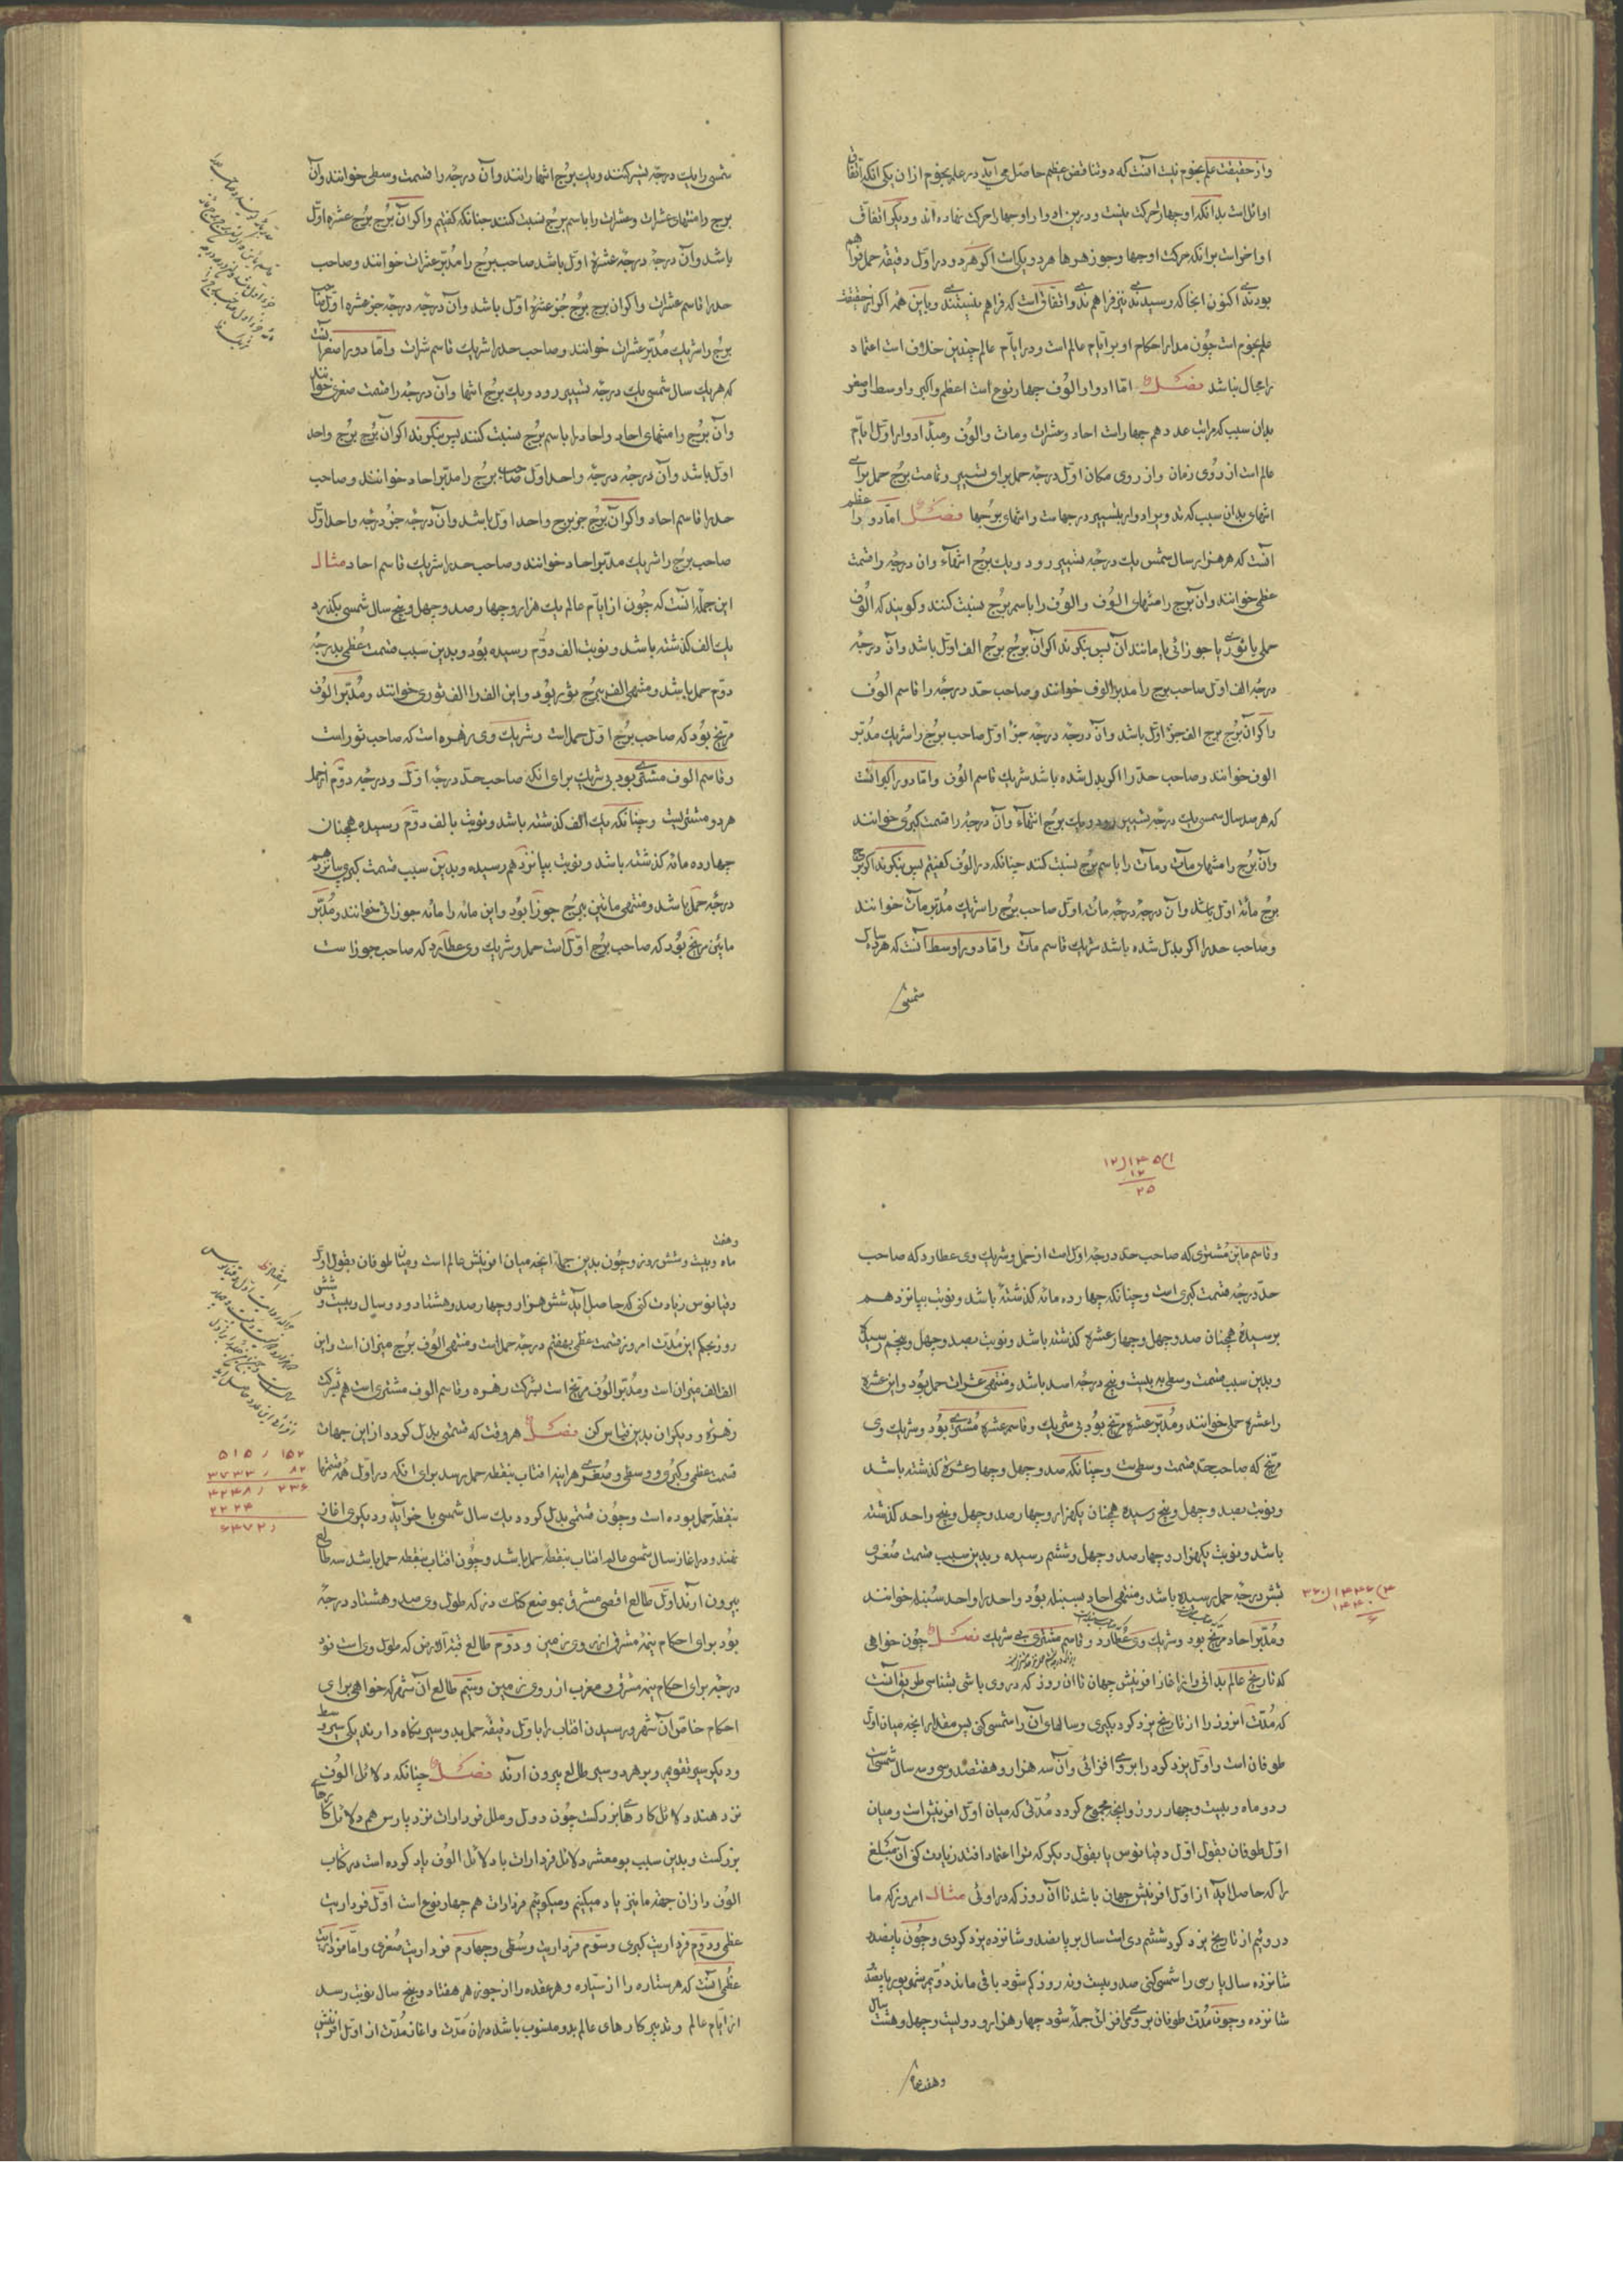 واز حقیقت علم نجوم نیست آنست که دو تناقض عظیم حاصل می آید در علم نجوم از ان یکی آنکه اتفاق
اوائل است بدانکه اوجها را حرکت نیست و درین ادوار اوجها را حرکت نهاده اند و دیگر اتفاق
اواخر است برانکه حرکت اوجها و جوزهرها هر دو یکی است اگر هر دو در اول دقیقه حمل فراهم
بودندی اکنون انجا که رسیدندی نیز فراهم ندی و اتفاق است که فراهم نیستندی و با این همه اگر از حقیقت
علم نجوم است چون مدار احکام او بر ایام عالم است و در ایام عالم چندین خلاف است اعتماد
را مجال نباشد فصل اما ادوار الوف چهار نوع است اعظم و اکبر و اوسط و اصغر
بدان سبب که مراتب عدد هم چهار است احاد و عشرات و مات و الوف و مبدأ ادوار اول ایام
عالم است از روی زمان و از روی مکان اول درجه حمل برای تسییر و تمامت برج حمل برای
انتهای بدان سبب که تدویر ادوار بتسییر درجهاست و انتهای برجها فصل اما دور اعظم
آنست که هر هزار سال شمسی یک درجه تسییر رود و یک برج انتهاء وان درجه را قسمت
عظمی خوانند وان برج را منتهای الوف والوف را باسم برج نسبت کنند و گویند که الوف
حملی یا ثوری یا جوزائی یا مانند آن پس بنگرند اگر آن برج برج الف اول باشد وان درجه
درجه الف اول صاحب برج را مدبر الوف خوانند و صاحب حد درجه را قاسم الوف
واگر آن برج برج الف جز اول باشد وان درجه درجه جز اول صاحب برج را شریک مدبر
الوف خوانند و صاحب حد را اگر بدل شده باشد شریک قاسم الوف واما دور اکبر آنست
که هر صد سال شمسی یک درجه تسییر رود و یک برج انتهاء وان درجه را قسمت کبری خوانند
وان برج را منتهای مات و مات را باسم برج نسبت کنند چنانکه در الوف گفتیم پس بنگرند اگر برج
برج مائه اول باشد وان درجه درجه مائه اول صاحب برج را شریک مدبر مات خوانند
و صاحب حد را اگر بدل شده باشد شریک قاسم مات واما دور اوسط آنست که هر ده سال
شمسی
شمسی را یک درجه تسییر کنند و یک برج انتها رانند وان درجه را قسمت وسطی خوانند وآن
برج را منتهای عشرات و عشرات را باسم برج نسبت کنند چنانکه گفتیم واگر آن برج برج عشره اول
باشد وان درجه درجه عشره اول باشد صاحب برج را مدبر عشرات خوانند و صاحب
حد را قاسم عشرات واگر ان برج برج جز عشره اول باشد وان درجه درجه جز عشره اول صاحب
برج را شریک مدبر عشرات خوانند و صاحب حد را شریک قاسم عشرات واما دور اصغر آنست
که هر یک سال شمسی یک درجه تسییر رود و یک برج انتها وان درجه را قسمت صغری خوانند
وان برج را منتهای احاد و احاد را باسم برج نسبت کنند پس بنگرند اگر ان برج برج واحد
اول باشد وان درجه درجه واحد اول صاحب برج را مدبر احاد خوانند و صاحب
حد را قاسم احاد واگر آن برج جز برج واحد اول باشد وان درجه جز درجه واحد اول
صاحب برج را شریک مدبر احاد خوانند و صاحب حد را شریک قاسم احاد مثال
این جمله آنست که چون از ایام عالم یک هزار و چهار صد و چهل و پنج سال شمسی بگذرد
یک الف گذشته باشد و نوبت الف دوم رسیده بود و بدین سبب قسمت عظمی بدرجه
دوم حمل باشد و منتهی الف برج ثور بود و این الف را الف ثوری خوانند و مدبر الوف
مریخ بود که صاحب برج اول حمل است و شریک وی زهره است که صاحب ثور است
و قاسم الوف مشتری بود بی شریک برای انکه صاحب حد درجه اول و درجه دوم از حمل
هر دو مشتریست و چنانکه یک الف گذشته باشد و نوبت بالف دوم رسیده همچنان
چهارده مائه گذشته باشد و نوبت بپانزدهم رسیده و بدین سبب قسمت کبری بپانزدهم
درجه حمل باشد و منتهی مائین ببرج جوزا بود و این مائه را مائه جوزائی خوانند و مدبر
مائین مریخ بود که صاحب برج اول است حمل و شریک وی عطارد که صاحب جوزاست
۱) ۱۴۵ (۱۲
۱۲
۲۵
و قاسم مائین مشتری که صاحب حد درجه اول است از حمل و شریک وی عطارد که صاحب
حد درجه قسمت کبری است و چنانکه چهارده مائه گذشته باشد و نوبت بپانزدهم
برسیده همچنان صد و چهل و چهار عشره گذشته باشد و نوبت بصد و چهل و پنجم رسیده
و بدین سبب قسمت وسطی به بیست و پنج درجه اسد باشد و منتهی عشرات حمل بود و این عشره
را عشره حملی خوانند و مدبر عشره مریخ بود بی شریک و قاسم عشره مشتری بود و شریک وی
مریخ که صاحب حد قسمت وسطی ست و چنانکه صد و چهل و چهار عشره گذشته باشد
و نوبت بصد و چهل و پنج رسیده همچنان یکهزار و چهار صد و چهل و پنج واحد گذشته
باشد و نوبت بیکهزار و چهار صد و چهل و ششم رسیده و بدین سبب قسمت صغری
بشش درجه حمل رسیده باشد و منتهی احاد بسنبله بود و واحد را واحد سنبله خوانند
و مدبر احاد مریخ بود و شریک وی عطارد و قاسم مشتری بی شریک فصل چون خواهی
که تاریخ عالم بدانی و از آغاز افرینش جهان تا ان روز که در وی باشی بشناسی طریق آنست
که مدت امروز را از تاریخ یزدگرد بگیری و سالهای آن را شمسی کنی پس مقدار انچه میان اول
طوفان است و اول یزدگرد را بر وی افزائی وان سه هزار و هفتصد و سی و سه سال شمسی است
و دو ماه و بیست و چهار روز و انچه مجموع گردد مدتی که میان اول افرینش است و میان
اول طوفان بقول اول دقیانوس یا بقول دیگر که ترا اعتماد افتد زیادت کنی آن مبلغ
را که حاصل اید از اول افرینش جهان باشد تا آن روز که در اوئی مثال امروز که ما
درویم از تاریخ یزدگرد ششم دی است سال بر پانصد و شانزده یزدگردی و چون پانصد
شانزده سال پارسی را شمسی کنی صد و بیست و نه روز کم شود باقی ماند دویم شهریور پانصد
شانزده و چون مدت طوفان بر وی افزائی جمله شود چهار هزار و دویست و چهل و هشت سال
و هفت ماه
و هفت
ماه و بیست و شش روز و چون بدین جمله انچه میان افرینش عالم است و میان طوفان بقول اول
دقیانوس زیادت کنی که حاصل اید شش هزار و چهار صد و هشتاد و دو سال و بیست و شش
روز بحکم این مدت امروز قسمت عظمی بهفتم درجه حمل است و منتهی الوف برج میزان است و این
الف الف میزان است و مدبر الوف مریخ است بشرکت زهره و قاسم الوف مشتری است هم بشرکت
زهره و دیگران بدین قیاس کن فصل هر وقت که قسمتی بدل گردد از این جهات
قسمت عظمی و کبری و وسطی و صغری هر اینه افتاب بنقطه حمل رسد برای انکه در اول همه قسمتها
بنقطه حمل بوده است و چون قسمتی بدل گردد یک سال شمسی با خر آید و دیگری اغاز
نهند و در اغاز سال شمسی عالم افتاب بنقطه حمل باشد و چون افتاب بنقطه حمل باشد سه طالع
بیرون ارند اول طالع اقصی مشرق بموضع کنک دز که طول وی صد و هشتاد درجه
بود برای احکام نیمه مشرق از روی زمین و دوم طالع قبه الارض که طول وی است نود
درجه برای احکام نیمه مشرق و مغرب از روی زمین و سیم طالع آن شهر که خواهی برای
احکام خاص آن شهر و رسیدن افتاب را باول دقیقه حمل بدو سیر نگاه دارند یکی سیر وسط
و دیگر سیر تقویم و بر هر دو سیر طالع بیرون ارند فصل چنانکه دلائل الوف
نزد هند دلائل کارهای بزرگست چون دول و ملل فردارات نزد پارس هم دلائل کارهای
بزرگست و بدین سبب بو معشر دلائل فردارات با دلائل الوف یاد کرده است در کتاب
الوف و ازان جهه ما نیز یاد میکنیم و میگوییم فردارات هم چهار نوع است اول فرداریت
عظمی و دوم فرداریت کبری و سوم فرداریت وسطی و چهارم فرداریت صغری واما فرداریت
عظمی آنست که هر ستاره را از سیاره و هر عقده را از جوزهر هفتاد و پنج سال نوبت رسد
از ایام عالم و تدبیر کارهای عالم بدو منسوب باشد دران مدت و اغاز مدت از اول افرینش